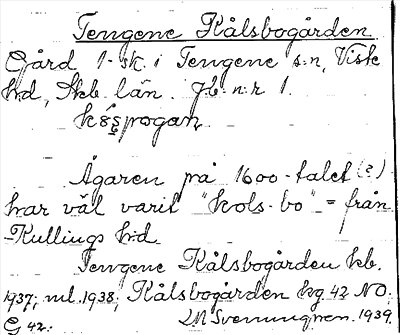 Tengene Kålsbogården
Gård 1 sk. i Tengene s:n, Viste
h:d, Skb. län. Jb. n:r 1.

Ägaren på 1600-talet (?)
har väl varit "kols-bo" = från
Kullings h:d
Tengene Kålsbogården kb.
1937; ml. 1938; Kålsbogården kg 42 NO;
G 42. 1939.